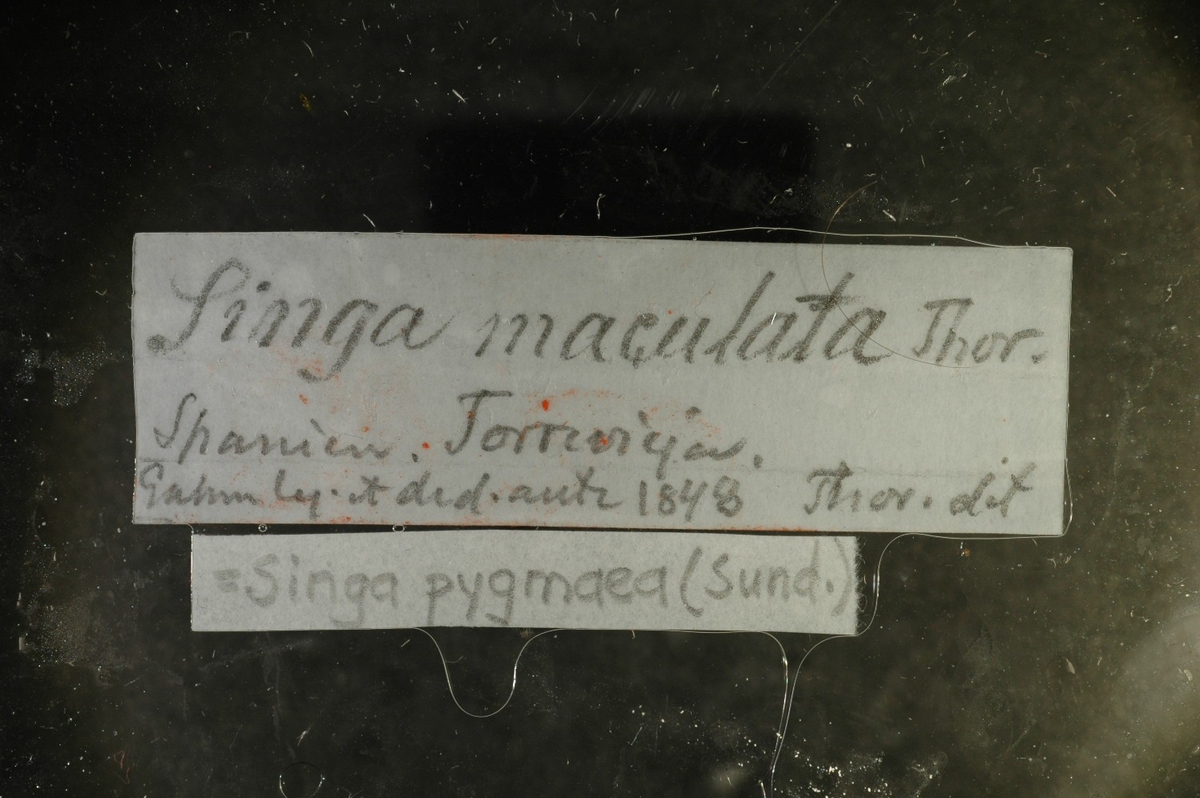 Singa maculata Thor.
Spanien. Torrevieja.
Gahm leg. et ded. ante 1848 Thor. det
=Singa pygmaea (Sund.)